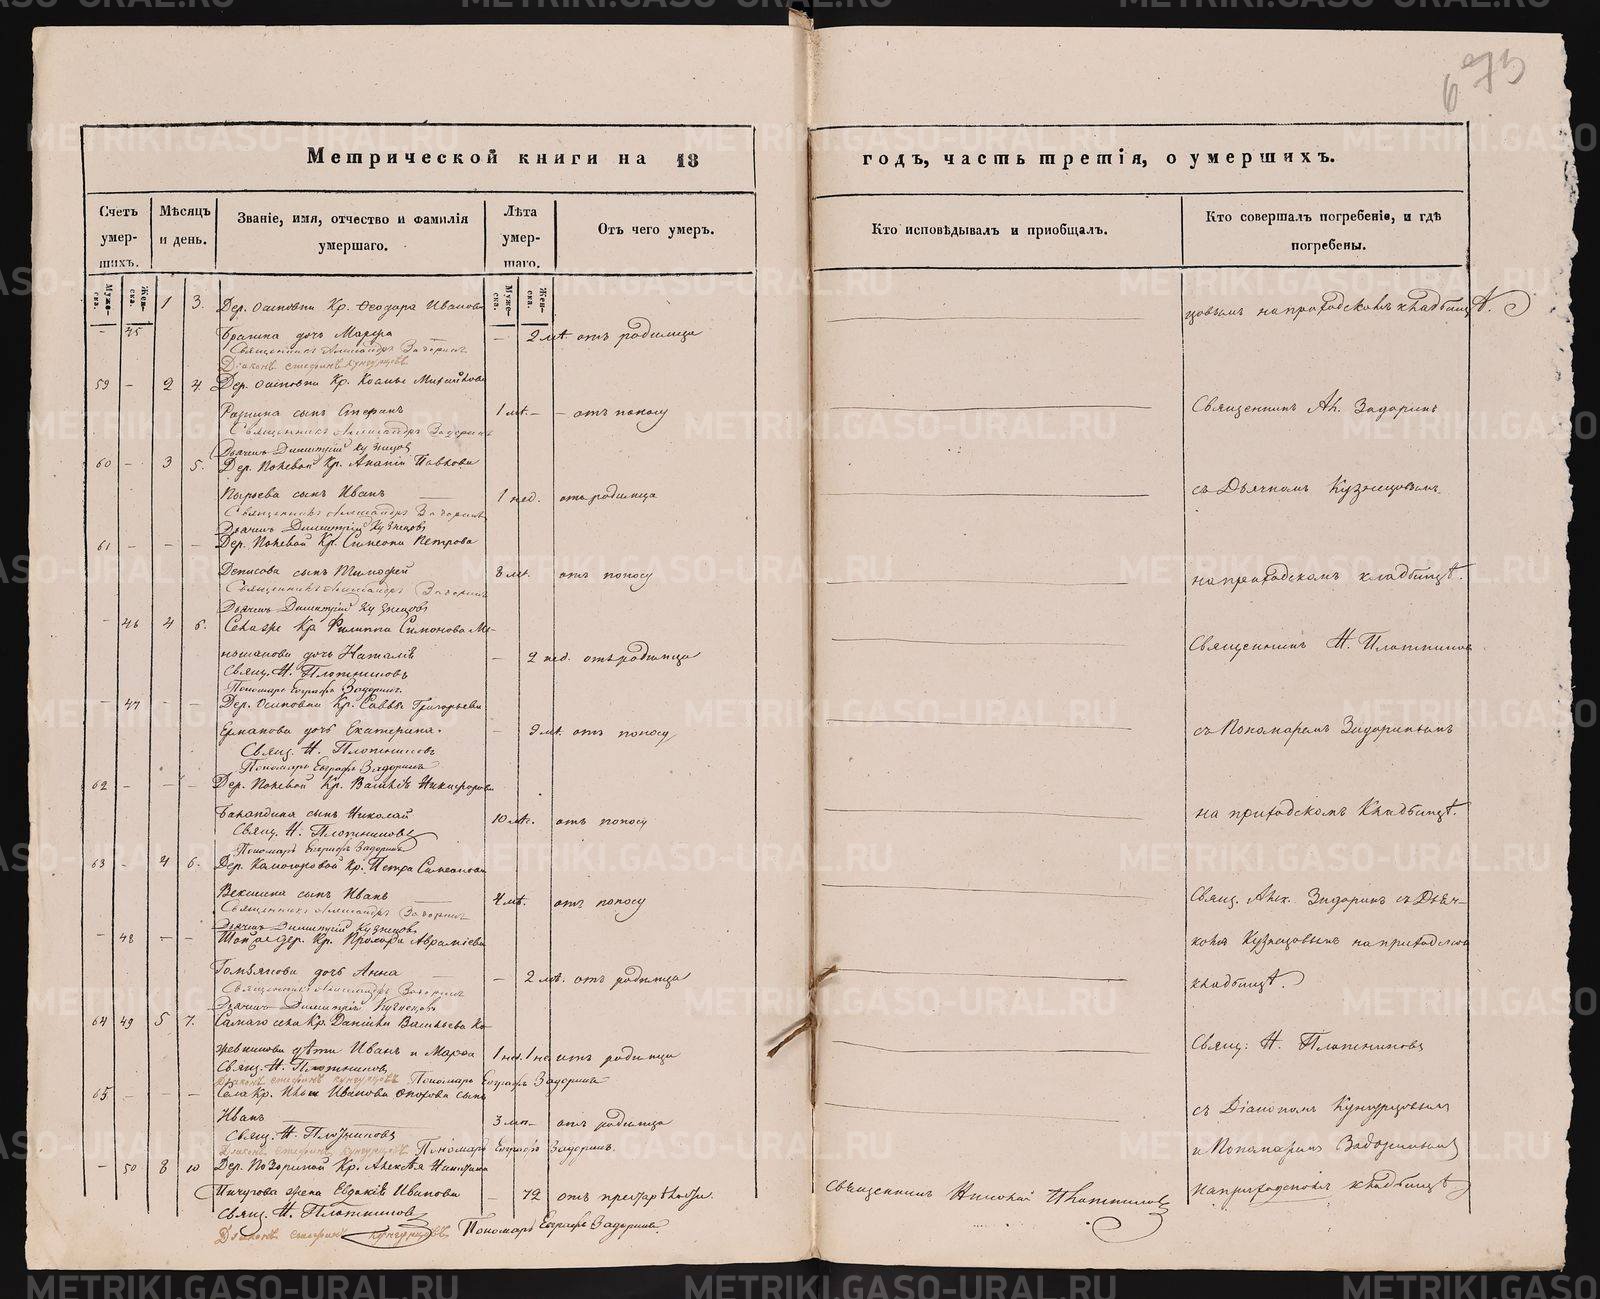 673
Метрической книги на 18
годъ, часть третія, о умершихъ.
Счетъ умер-шихъ.
Мѣсяцъ и день.
Званіе, имя, отчество и фамилія умершаго.
Лѣта умер-шаго.
Отъ чего умеръ.
Кто исповѣдывалъ и приобщалъ.
Кто совершалъ погребеніе, и гдѣ погребены.
Муже-ска.
Жен-ска.
Муже-ска.
Жен-ска.
1 3. Дер. Осиповки Кр. Ѳеодора Иванова
цовымъ на приходскомъ кладбищѣ.
45 дочь Марѳа — 2 мѣ. отъ родимца
Священникъ Александръ Задоринъ
Діаконъ Стефанъ Кунгурцевъ
59 — 2 4. Дер. Осиповки Кр. Козмы Михайлова
сынъ Стефанъ 1 мѣ. — — отъ поносу
Священникъ Ал. Задоринъ
Священникъ Александръ Задоринъ
Дьячекъ Димитрій Кузнецовъ
60 — 3 5. Дер. Полевой Кр. Ананіи Павлова
Пырьева сынъ Иванъ 1 нед. отъ родимца
съ Дьячкомъ Кузнецовымъ
Священникъ Александръ Задоринъ
Дьячекъ Димитрій Кузнецовъ
61 — — — Дер. Полевой Кр. Симеона Петрова
Денисова сынъ Тимофей 8 мѣ. отъ поносу
на приходскомъ кладбищѣ.
Священникъ Александръ Задоринъ
Дьячекъ Димитрій Кузнецовъ
— 46 4 6. Села же Кр. Филиппа Симонова Ме-
ньшакова дочь Наталія — 2 нед. отъ родимца
Священникъ Н. Плотниковъ
Свящ. Н. Плотниковъ
Пономарь Евграфъ Задоринъ.
— 47 — — Дер. Осиповки Кр. Саввы Григорьева
Ермакова дочь Екатерина. — 9 мѣ. отъ поносу
съ Пономаремъ Задоринымъ
Свящ. Н. Плотниковъ
Пономарь Евграфъ Задоринъ
62 — — — Дер. Полевой Кр. Василія Никифорова
Баландина сынъ Николай 10 мѣс. отъ поносу
на приходскомъ кладбищѣ.
Свящ. Н. Плотниковъ
Пономарь Евграфъ Задоринъ
63 — 4 6. Дер. Кр. Петра Симеонова
Векшина сынъ Иванъ 4 мѣ. отъ поносу
Свящ. Алек. Задоринъ съ Дьяч-
Священникъ Александръ Задоринъ
Дьячекъ Димитрій Кузнецовъ
— 48 — — Той же дер. Кр. Прокофа Авраміева
комъ Кузнецовымъ на приходском
дочь Анна — 2 мѣ. отъ родимца
кладбищѣ.
Священникъ Александръ Задоринъ
Дьячекъ Димитрій Кузнецовъ
64 49 5 7. Самаго села Кр. Даніила Васильева Ко-
жевникова дѣти Иванъ и Марѳа 1 нед. 1 не. отъ родимца
Свящ: Н. Плотниковъ
Свящ. Н. Плотниковъ
Діаконъ Стефанъ Кунгурцевъ Пономарь Евграфъ Задоринъ
65 — — — Села Кр. Ильи Иванова сынъ
Иванъ 3 мѣ. — отъ родимца
съ Діакономъ Кунгурцовымъ
Свящ. Н. Плотниковъ
Діаконъ Стефанъ Кунгурцевъ Пономарь Евграфъ Задоринъ.
и Пономаремъ Задоринымъ
— 50 8 10 Дер. Кр. Алексѣя Никитина
Пичугова жена Евдокія Иванова — 72 отъ престарѣлости.
Священникъ Николай Плотниковъ
на приходскомъ кладбищѣ
Свящ. Н. Плотниковъ
Діаконъ Стефанъ Кунгурцевъ Пономарь Евграфъ Задоринъ
METRIKI.GASO-URAL.RU